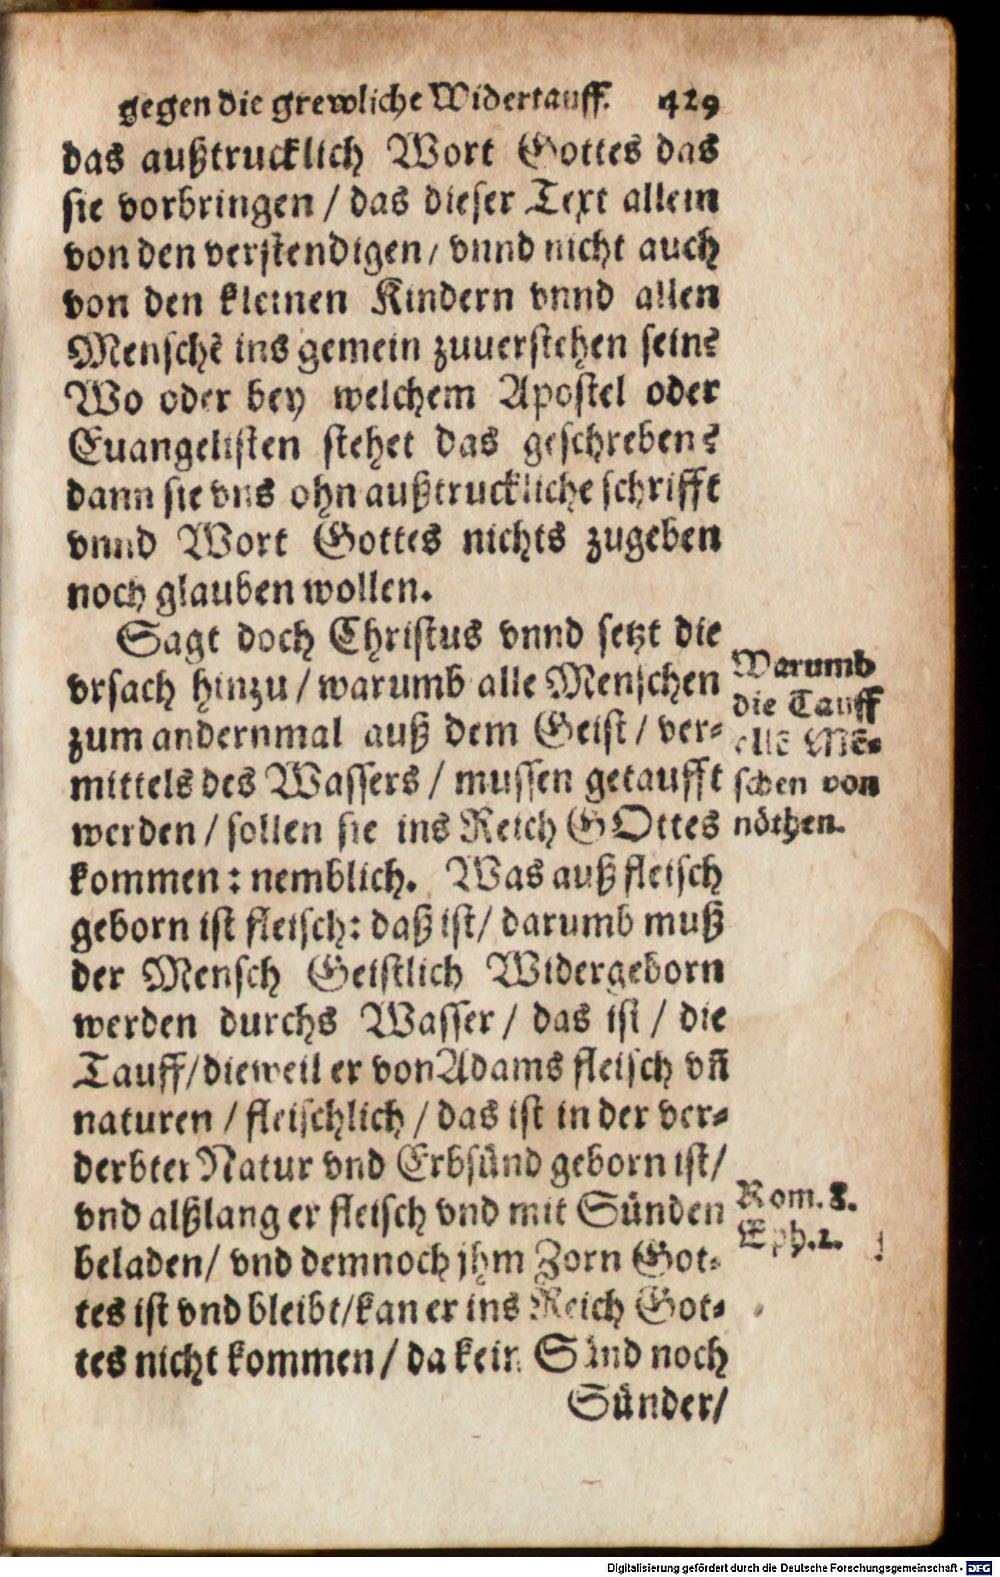 gegen die grewliche Widertauff. 429
das außtrucklich Wort Gottes das
sie vorbringen / das dieser Text allein
von den verstendigen / vnnd nicht auch
von den kleinen Kindern vnnd allen
Menschẽ ins gemein zuuerstehen sein?
Wo oder bey welchem Apostel oder
Euangelisten stehet das geschreben?
dann sie vns ohn außtruckliche schrifft
vnnd Wort Gottes nichts zugeben
noch glauben wollen.
Sagt doch Christus vnnd setzt die
vrsach hinzu / warumb alle Menschen
zum andernmal auß dem Geist / ver-
mittels des Wassers / mussen getaufft
werden / sollen sie ins Reich GOttes
kommen: nemblich. Was auß fleisch
geborn ist fleisch: daß ist / darumb muß
der Mensch Geistlich Widergeborn
werden durchs Wasser / das ist / die
Tauff / dieweil er von Adams fleisch vñ
naturen / fleischlich / das ist in der ver-
derbter Natur vnd Erbsünd geborn ist /
vnd alßlang er fleisch vnd mit Sünden
beladen / vnd demnoch jhm Zorn Got-
tes ist vnd bleibt / kan er ins Reich Got-
tes nicht kommen / da kein Sünd noch
Sünder /
Warumb
die Tauff
allẽ Mẽ-
schen von
nöthen.
Rom. 8.
Eph. 2.
Digitalisierung gefördert durch die Deutsche Forschungsgemeinschaft - DFG